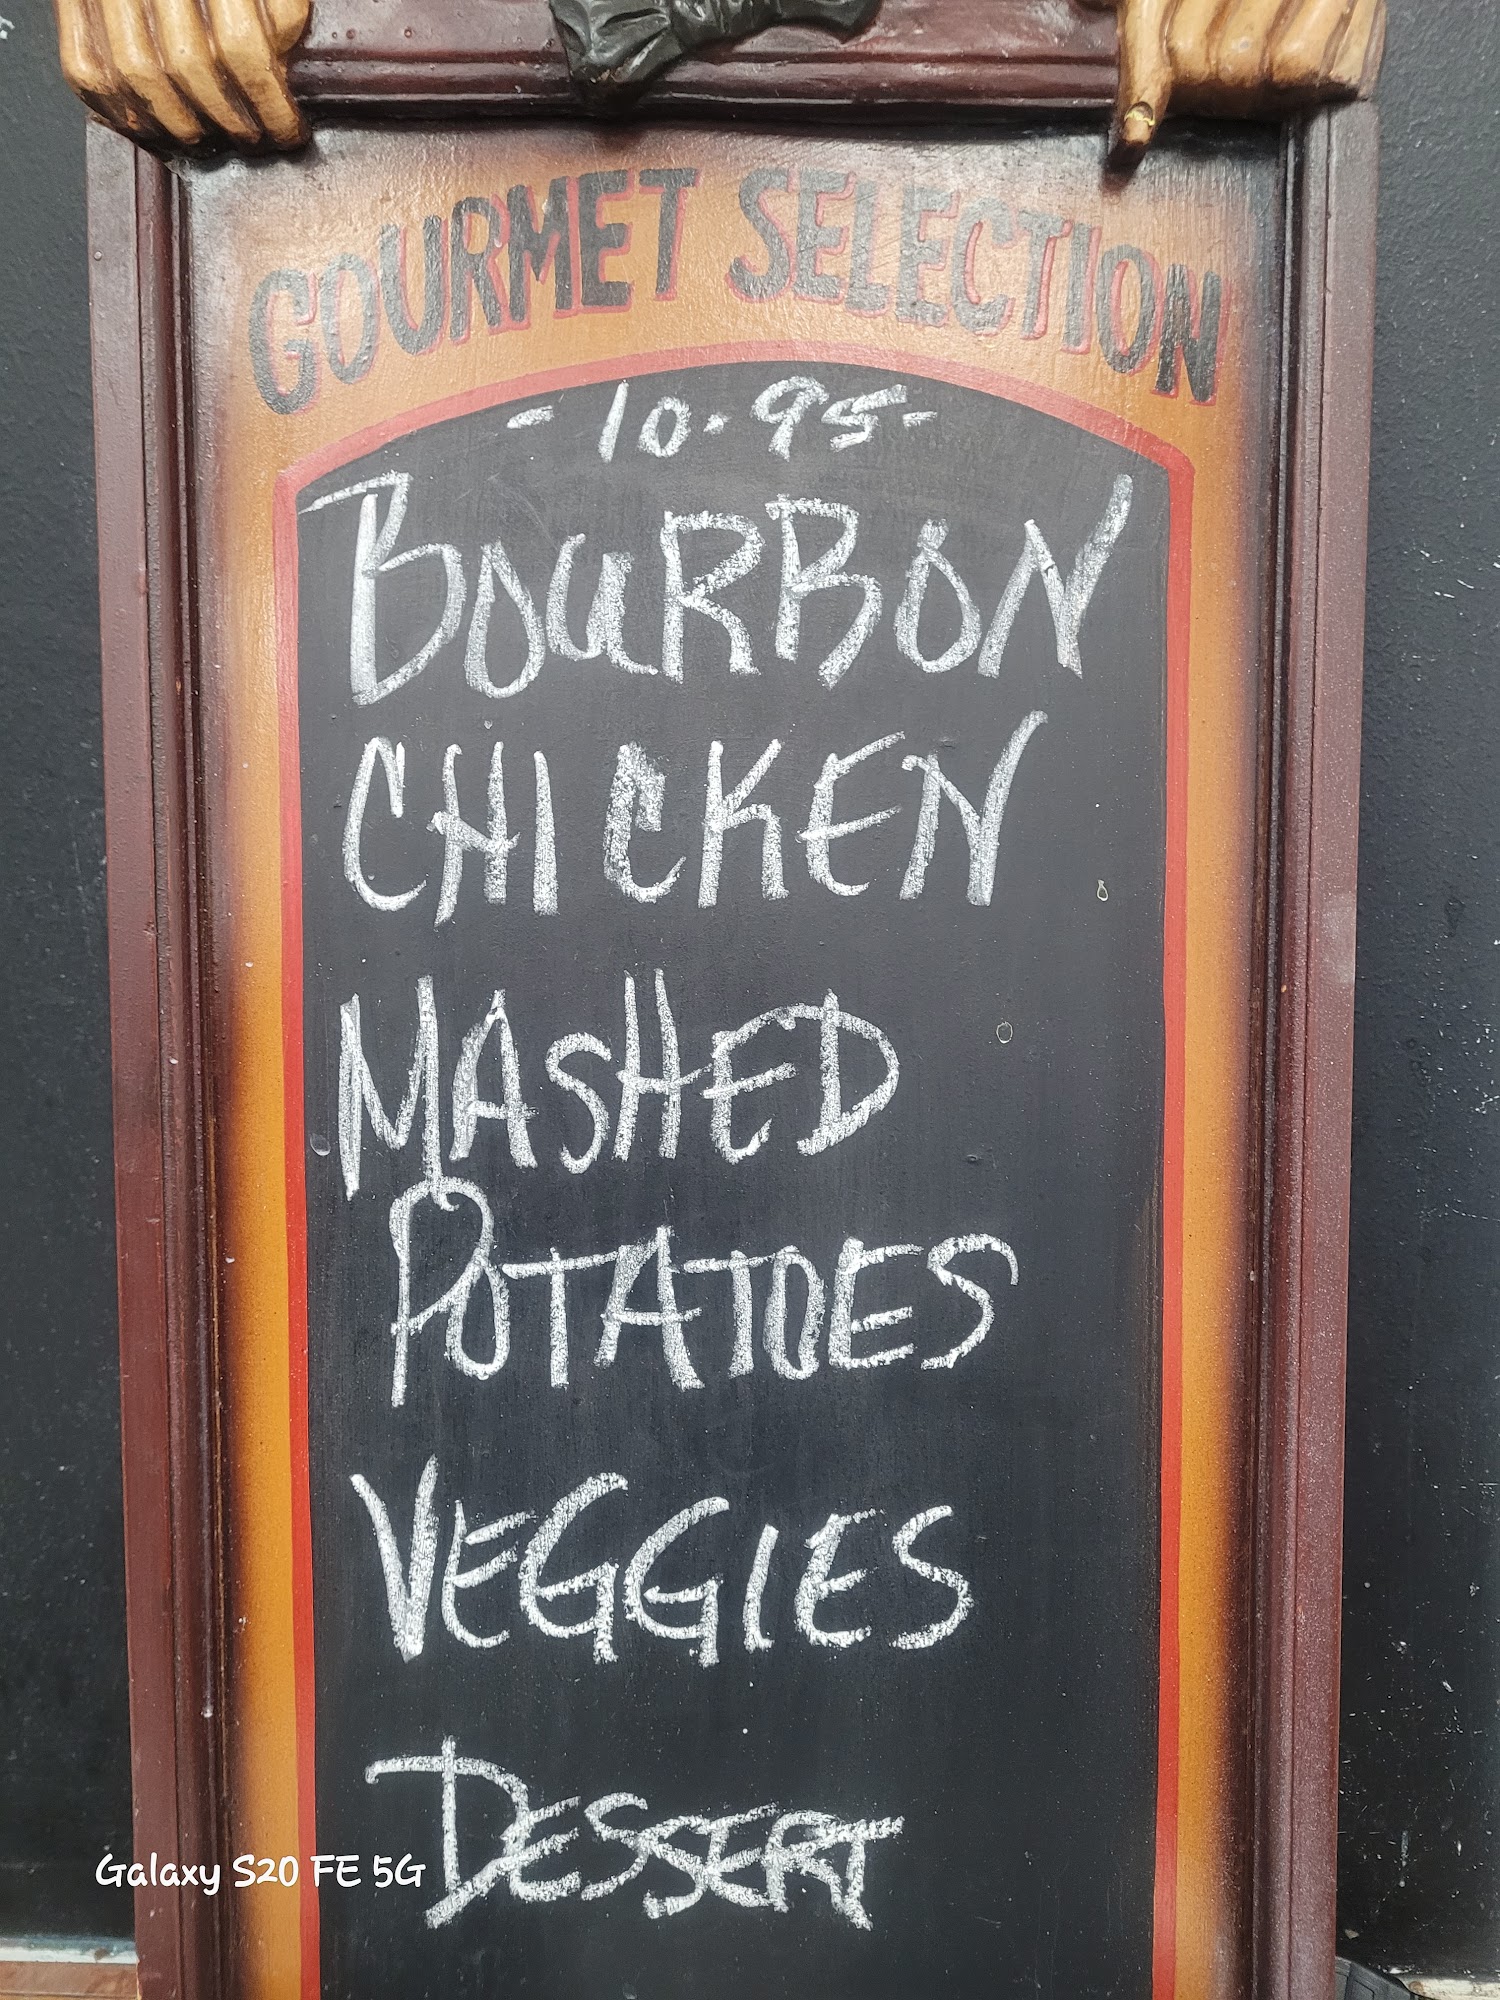 GOURMET SELECTION
- 10.95 -
BOURBON
CHICKEN
MASHED
POTATOES
VEGGIES
DESSERT
Galaxy S20 FE 5G